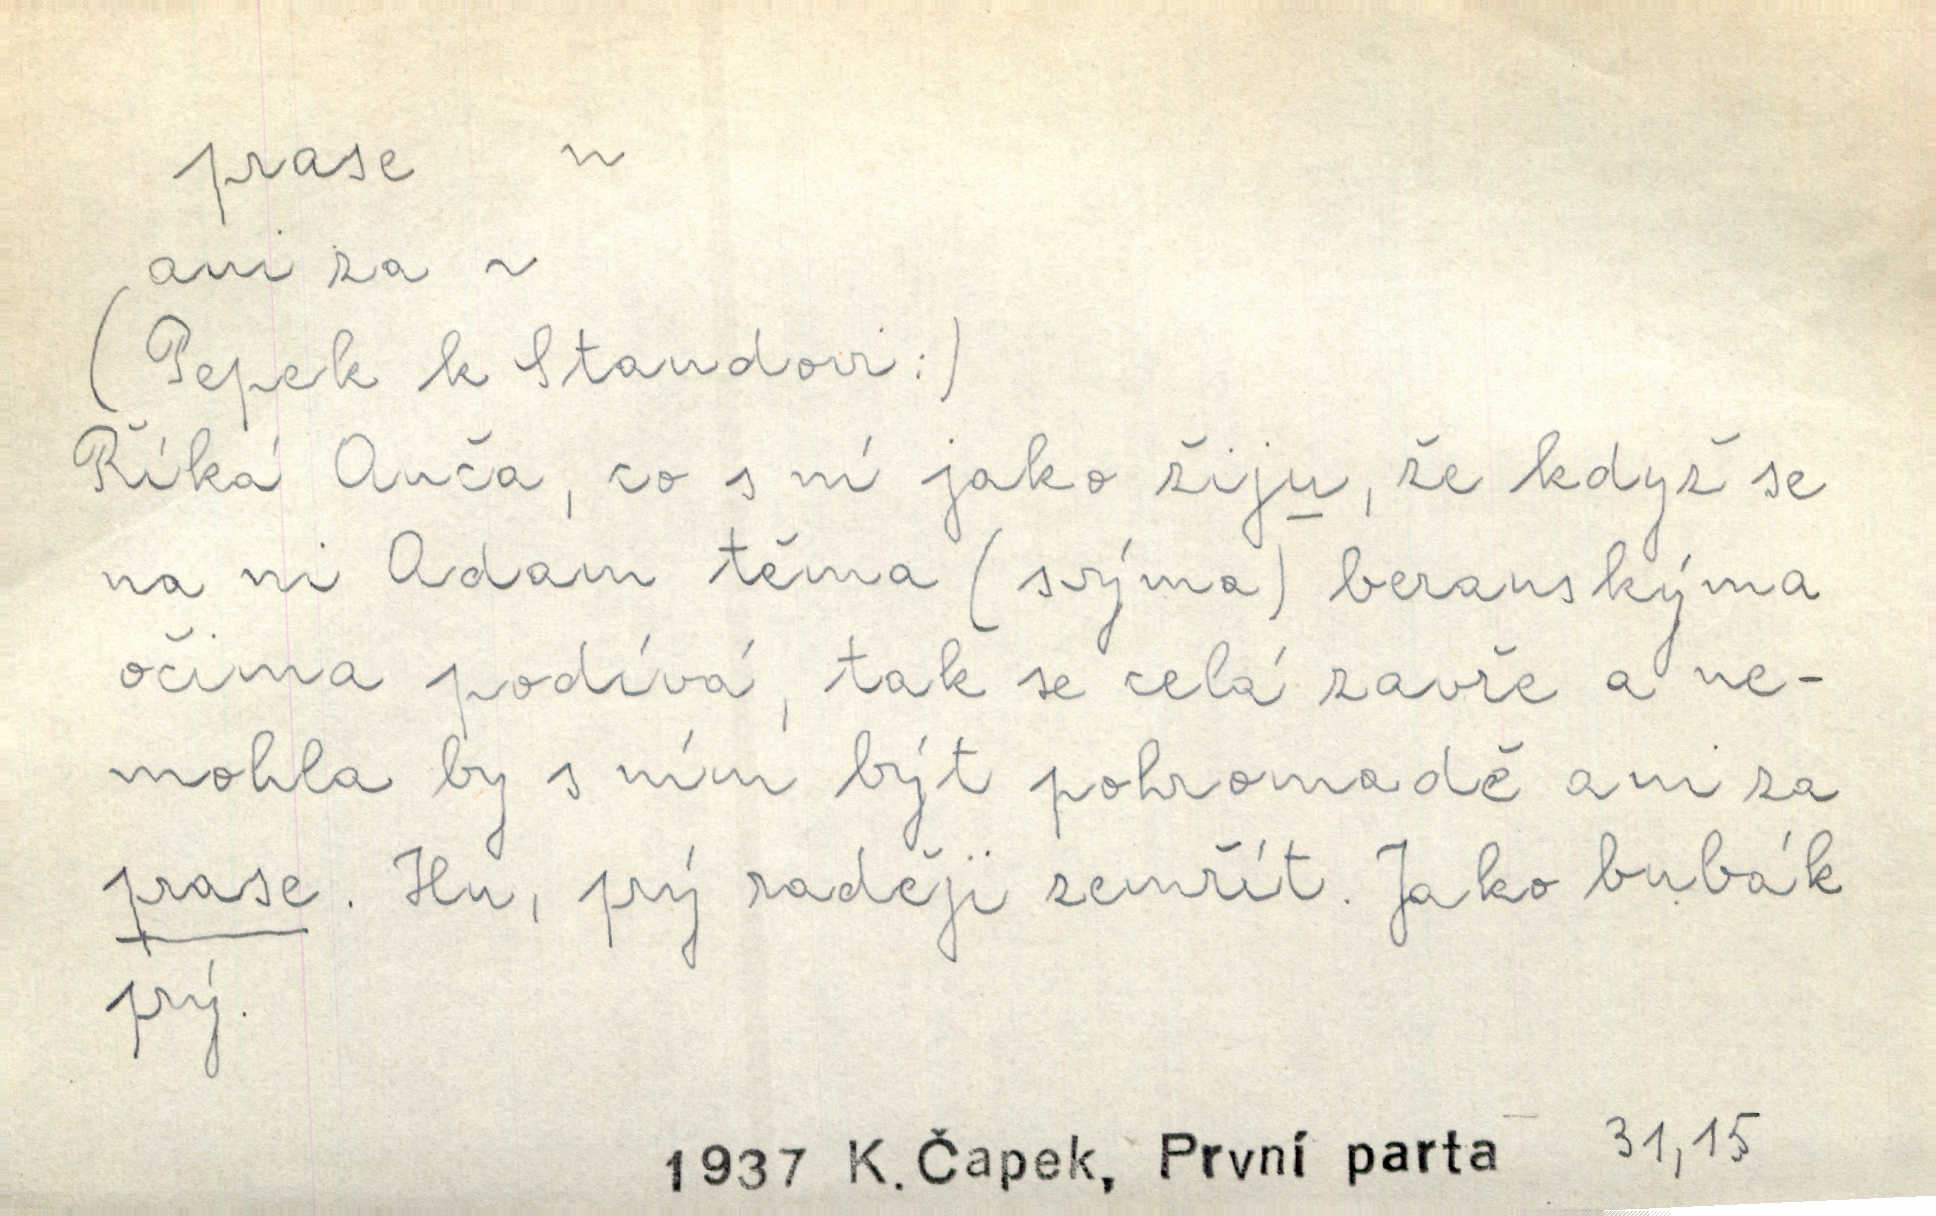 prase n
ani za ~
(Pepek k Standovi:)
Říká Anča, co s ní jako žiju, že když se
na ni Adam těma (svýma) beranskýma
očima podívá, tak se celá zavře a ne-
mohla by s ním být pohromadě ani za
prase. Hu, prý raději zemřít. Jako bubák
prý.
1937 K. Čapek, První parta 31,15